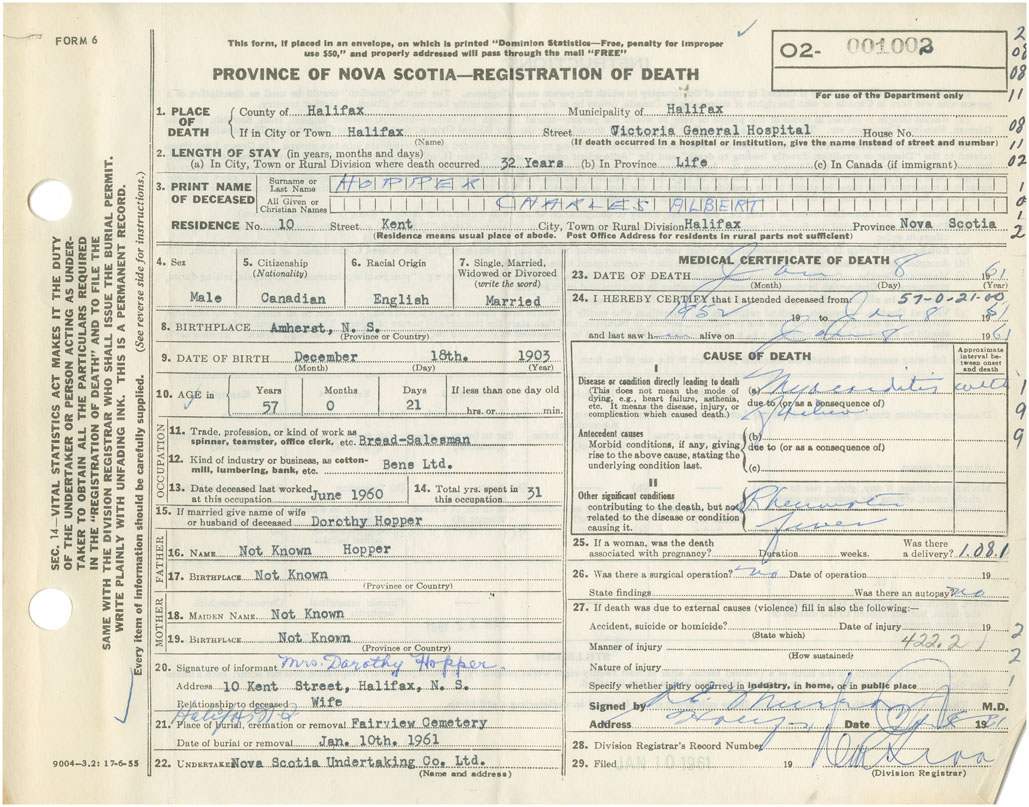 FORM 6
This form, if placed in an envelope, on which is printed "Dominion Statistics—Free, penalty for improper
use $50," and properly addressed will pass through the mail "FREE"
PROVINCE OF NOVA SCOTIA—REGISTRATION OF DEATH
O2- 001002
For use of the Department only
2
08
08
11
08
11
02
1
0
1
2
1. PLACE OF DEATH
County of Halifax Municipality of Halifax
If in City or Town Halifax Street Victoria General Hospital House No.
(Name) (If death occurred in a hospital or institution, give the name instead of street and number)
2. LENGTH OF STAY (in years, months and days)
(a) In City, Town or Rural Division where death occurred 32 Years (b) In Province Life (c) In Canada (if immigrant)
3. PRINT NAME OF DECEASED
Surname or Last Name HOPPER
All Given or Christian Names CHARLES ALBERT
RESIDENCE No. 10 Street Kent City, Town or Rural Division Halifax Province Nova Scotia
(Residence means usual place of abode. Post Office Address for residents in rural parts not sufficient)
4. Sex
Male
5. Citizenship
(Nationality)
Canadian
6. Racial Origin
English
7. Single, Married,
Widowed or Divorced
(write the word)
Married
8. BIRTHPLACE Amherst, N. S.
(Province or Country)
9. DATE OF BIRTH December 18th. 1903
(Month) (Day) (Year)
10. AGE in
Years Months Days If less than one day old
57 0 21 hrs. or min.
OCCUPATION
11. Trade, profession, or kind of work as
spinner, teamster, office clerk, etc. Bread-Salesman
12. Kind of industry or business, as cotton-
mill, lumbering, bank, etc. Bens Ltd.
13. Date deceased last worked
at this occupation June 1960
14. Total yrs. spent in
this occupation 31
15. If married give name of wife
or husband of deceased Dorothy Hopper
FATHER
16. NAME Not Known Hopper
17. BIRTHPLACE Not Known
(Province or Country)
MOTHER
18. MAIDEN NAME Not Known
19. BIRTHPLACE Not Known
(Province or Country)
20. Signature of informant Mrs. Dorothy Hopper.
Address 10 Kent Street, Halifax, N. S.
Relationship to deceased Wife
Halifax N S
21. Place of burial, cremation or removal Fairview Cemetery
Date of burial or removal Jan. 10th. 1961
22. UNDERTAKER Nova Scotia Undertaking Co. Ltd.
(Name and address)
9004—3.2: 17-6-55
MEDICAL CERTIFICATE OF DEATH
23. DATE OF DEATH Jan 8 1961
(Month) (Day) (Year)
57-0-21-00
24. I HEREBY CERTIFY that I attended deceased from
1952 19 to Jan 8 1961
and last saw h alive on Jan 8 1961
CAUSE OF DEATH
Approximate
interval be-
tween onset
and death
I
Disease or condition directly leading to death
(This does not mean the mode of
dying, e.g., heart failure, asthenia,
etc. It means the disease, injury, or
complication which caused death.)
(a) Myocarditis
due to (or as a consequence of)
Antecedent causes
Morbid conditions, if any, giving
rise to the above cause, stating the
underlying condition last.
(b)
due to (or as a consequence of)
(c)
II
Other significant conditions
contributing to the death, but not
related to the disease or condition
causing it.
Rheumatic
fever
1
9
9
25. If a woman, was the death
associated with pregnancy? Duration weeks. Was there
a delivery? 1.08.1
26. Was there a surgical operation? no Date of operation 19
State findings Was there an autopsy no
27. If death was due to external causes (violence) fill in also the following:—
Accident, suicide or homicide? Date of injury 19
(State which)
Manner of injury 422.2
(How sustained)
Nature of injury
Specify whether injury occurred in industry, in home, or in public place
2
1
2
1
Signed by M.D.
Address Date Jan 8 1961
28. Division Registrar's Record Number
29. Filed JAN 10 1961 19
(Division Registrar)
SEC. 14—VITAL STATISTICS ACT MAKES IT THE DUTY
OF THE UNDERTAKER OR PERSON ACTING AS UNDER-
TAKER TO OBTAIN ALL THE PARTICULARS REQUIRED
IN THE "REGISTRATION OF DEATH" AND TO FILE THE
SAME WITH THE DIVISION REGISTRAR WHO SHALL ISSUE THE BURIAL PERMIT.
WRITE PLAINLY WITH UNFADING INK. THIS IS A PERMANENT RECORD.
Every item of information should be carefully supplied. (See reverse side for instructions.)